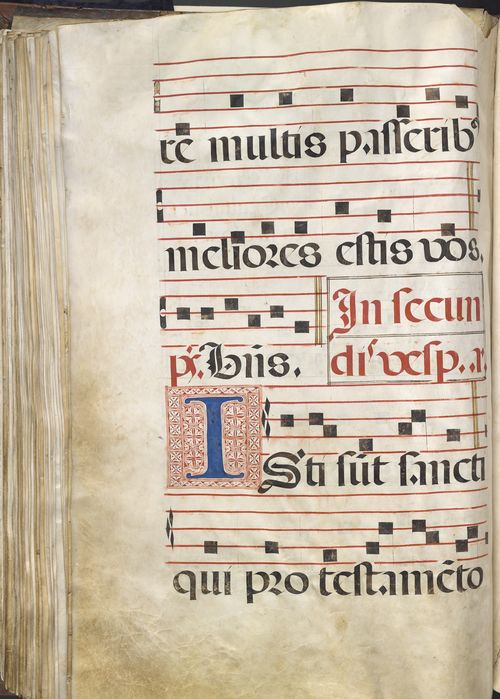 re multis passerib⁹
meliores estis vos.
ps. Bn̄s. In secun
dis vesp. a.
ISti sūt sancti
qui pro testamēto